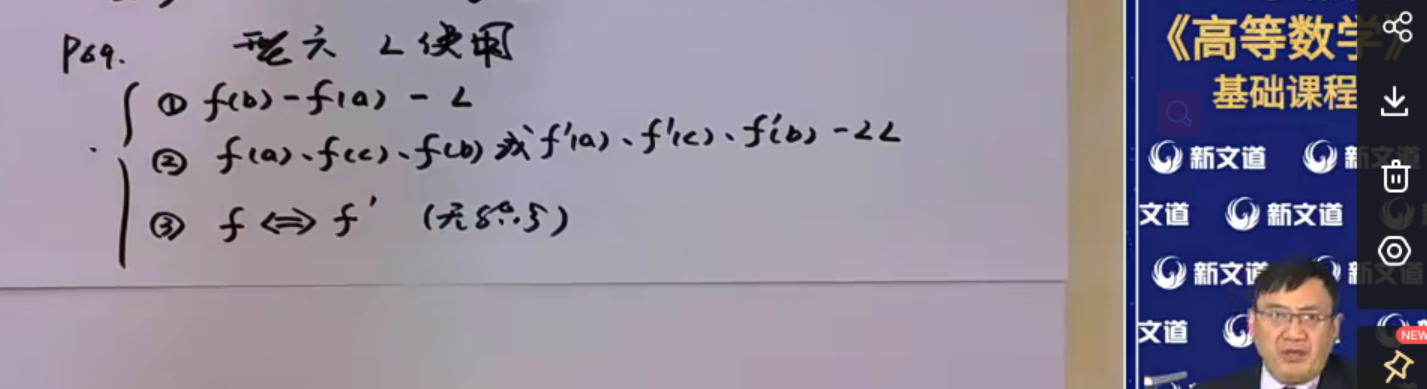 P69. 型六 L使用
① f(b)-f(a) - L
② f(a)、f(c)、f(b) 或 f'(a)、f'(c)、f'(b) - 2L
③ f ⇔ f'
《高等数学》
基础课程
新文道 新
文道 新文道
新文道 新文道
文道
NEW